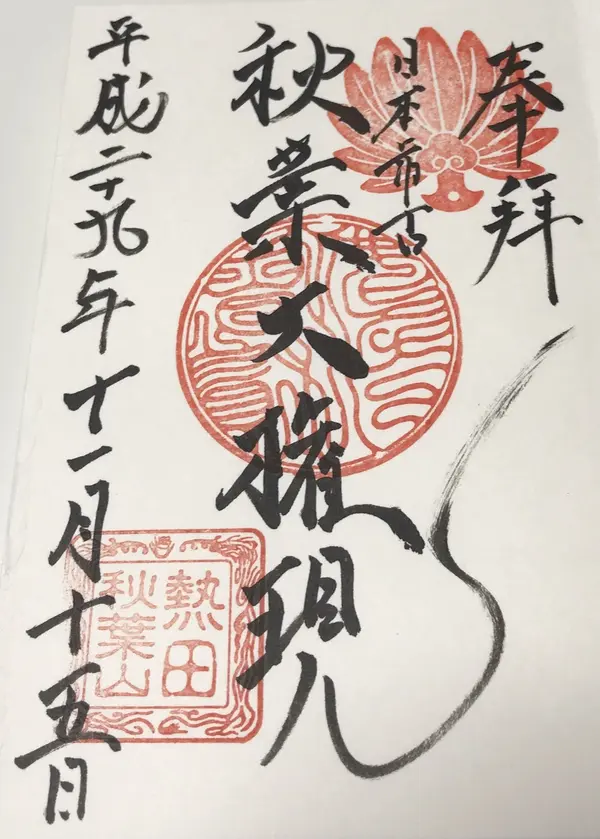 奉拝
日本最古
秋葉大権現
平成二十九年十一月十五日
熱田
秋葉山